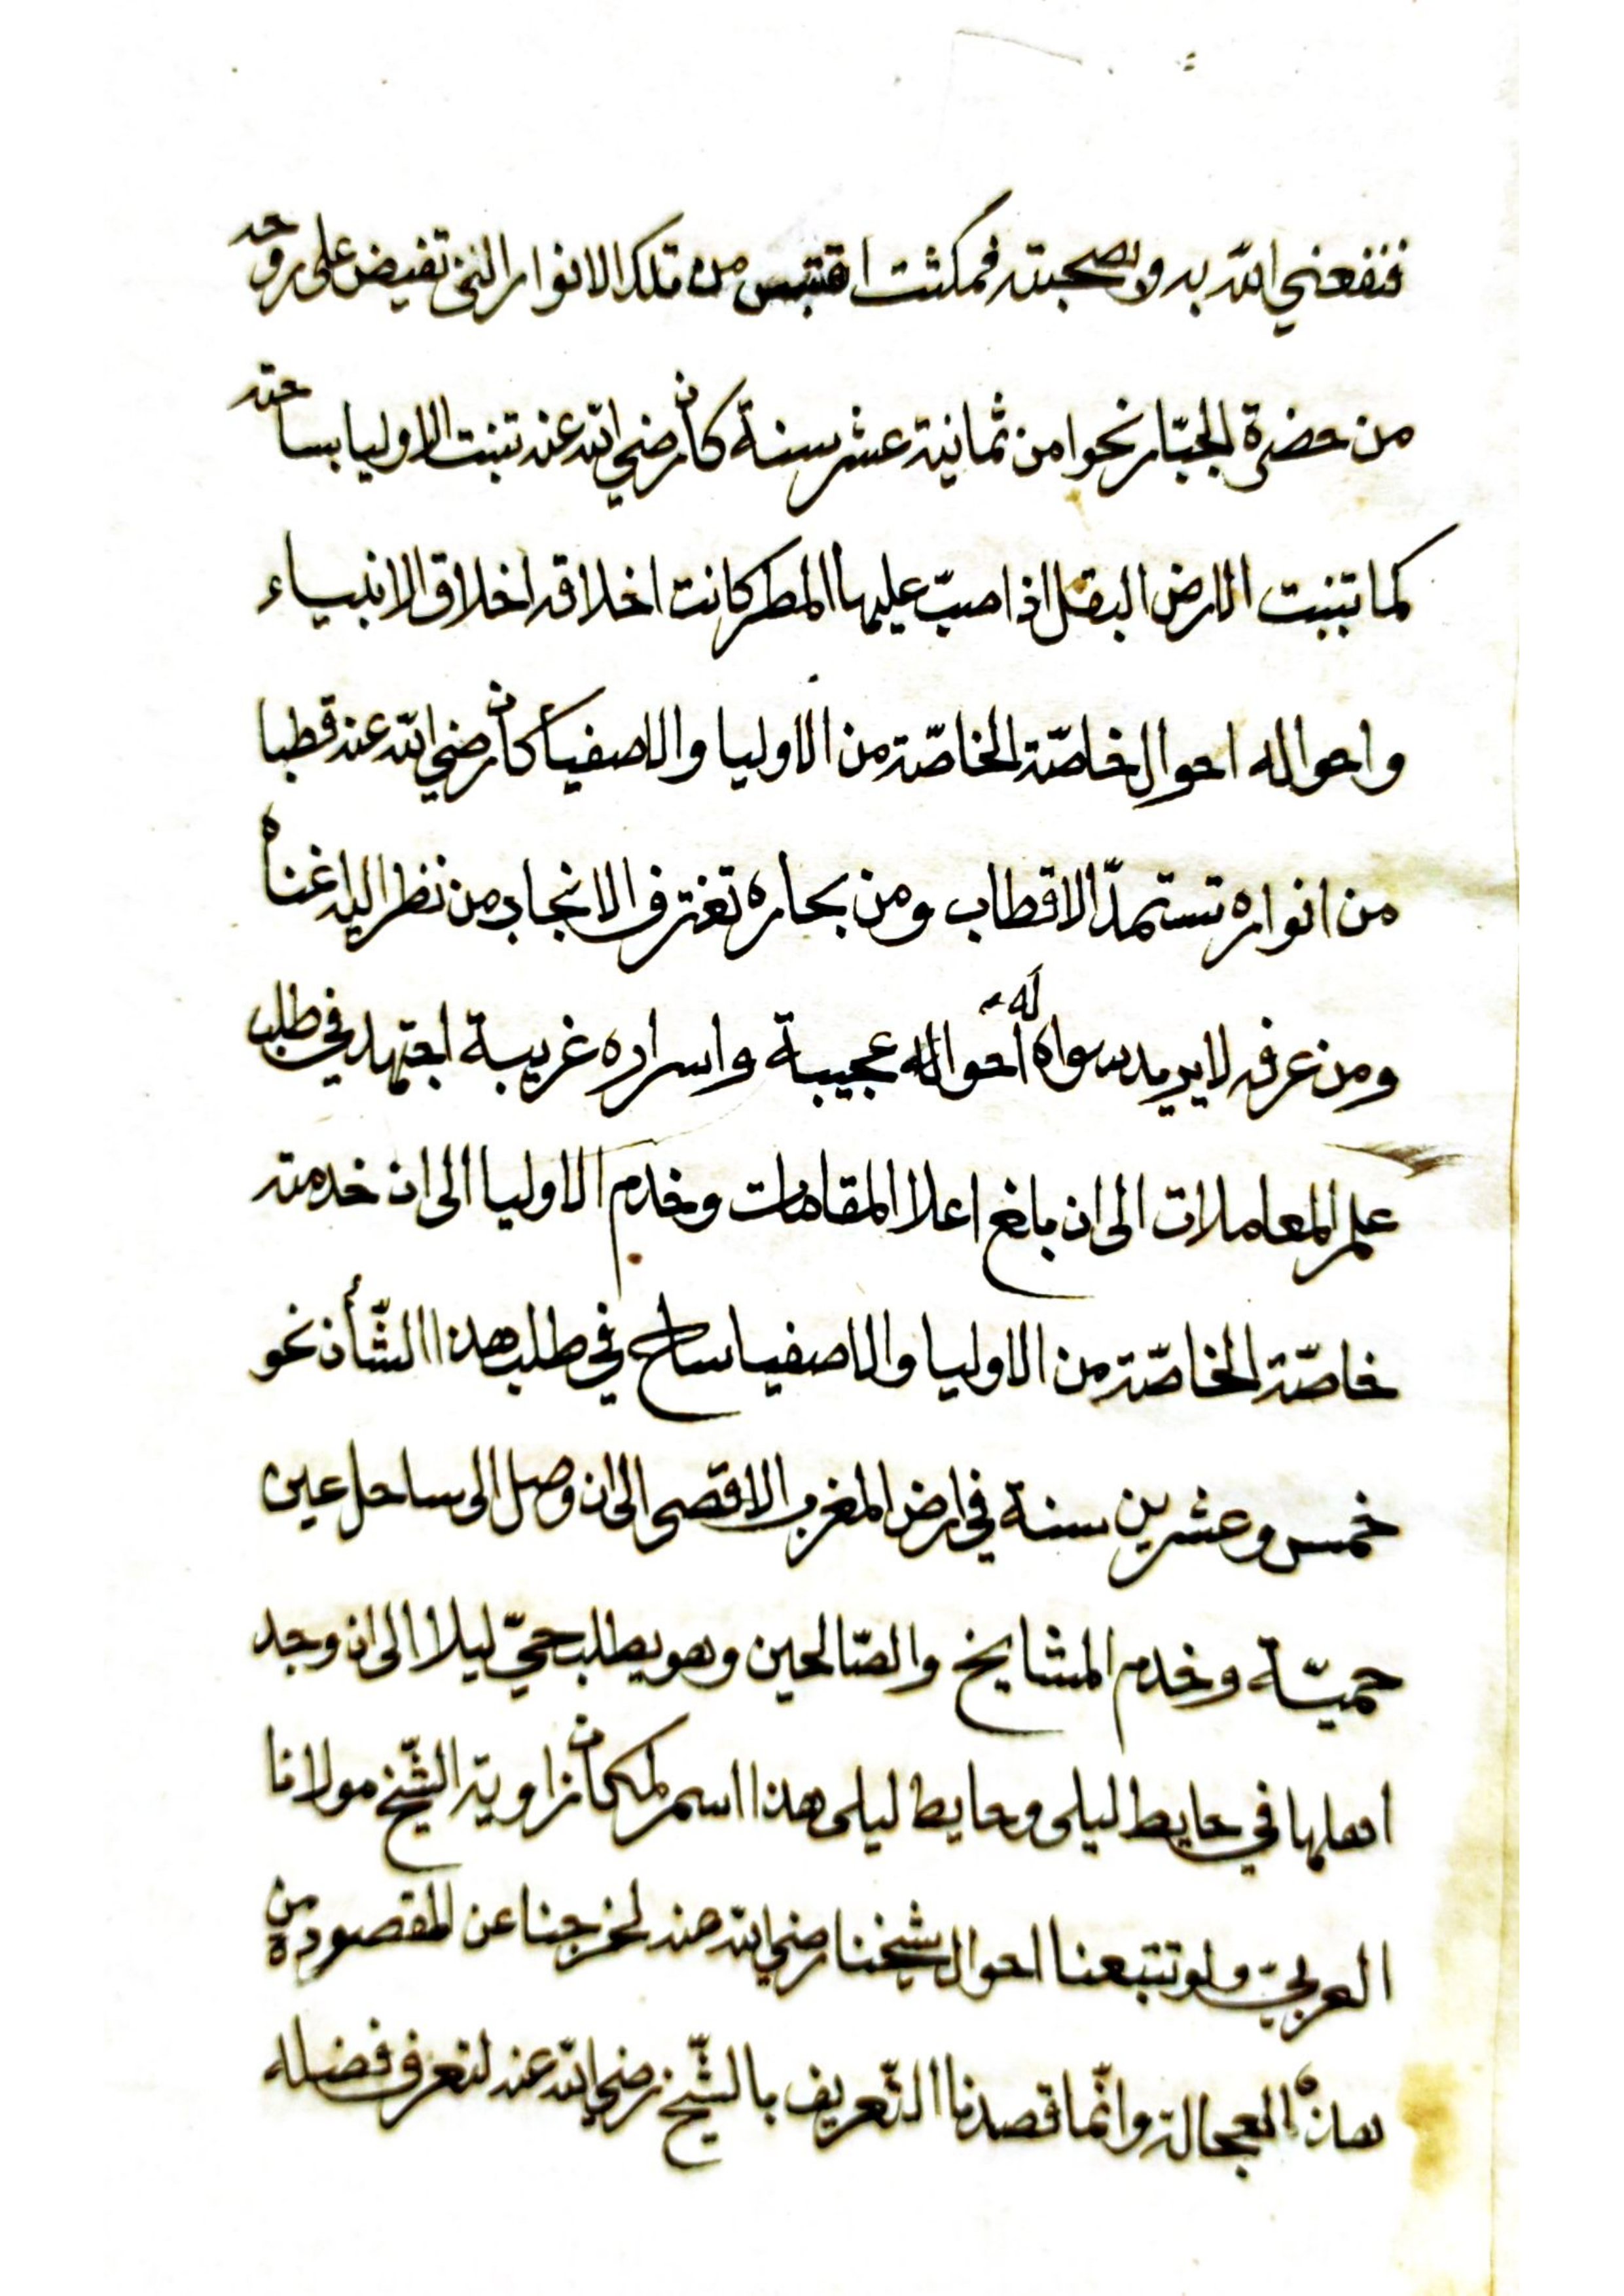 فنفعني الله به وبصحبته فمكثت اقتبس من تلك الانوار التي تفيض على روحه
من حضرة الجبّار نحوا من ثمانية عشر سنة كان رضي الله عنه تنبت الاوليا بساحته
كما تنبت الارض البقل اذا صبّ عليها المطر كانت اخلاقه اخلاق الانبياء
واحواله احوال خاصّة الخاصّة من الاوليا والاصفيأ كان رضي الله عنه قطبا
من انواره تستمدّ الاقطاب ومن بحاره تغترف الانجاب من نظر اليه اغناه
ومن عرفه لا يريد سواه له أحواله عجيبة واسراره غريبة اجتهد في طلب
علم المعاملات الى ان بلغ اعلا المقامات وخدم الاوليا الى ان خدمته
خاصّة الخاصّة من الاوليا والاصفيا ساح في طلب هذا الشّأن نحو
خمس وعشرين سنة في ارض المغرب الاقصى الى ان وصل الى ساحل عين
حميّة وخدم المشايخ والصّالحين وهو يطلب حيّ ليلا الى ان وجد
اهلها في حايط ليلى وحايط ليلى هذا اسم لمكان زاوية الشّيخ مولانا
العربيّ ولو تتبعنا احوال شيخنا رضي الله عنه لخرجنا عن المقصود من
هذه العجالة وانّما قصدنا التّعريف بالشّيخ رضي الله عنه لتعرف فضله